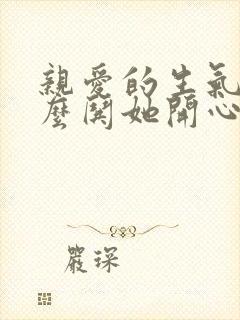 親愛的生氣
麼鬨她開心
嚴琛